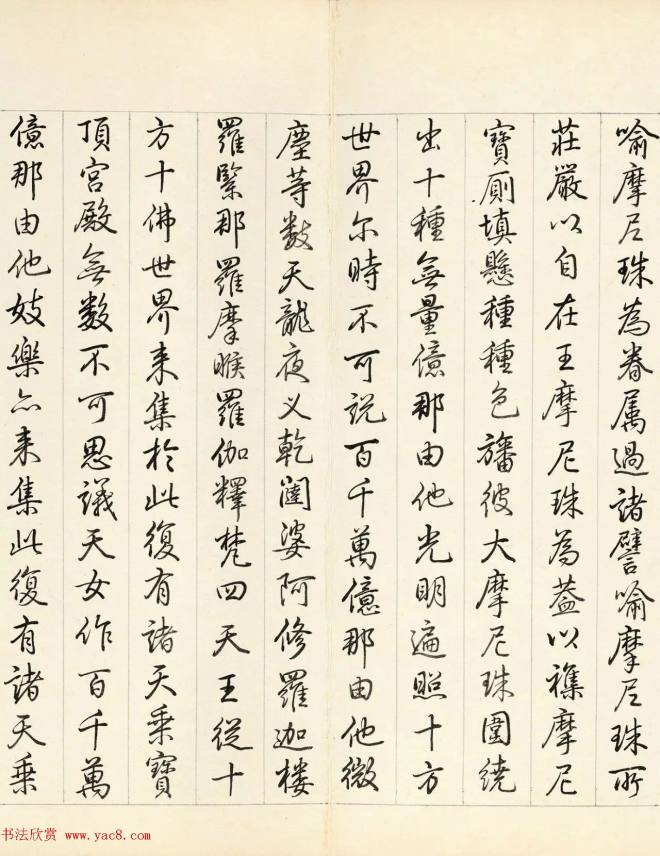 喻摩尼珠為眷属過諸譬喻摩尼珠所
莊嚴以自在王摩尼珠為蓋以雜摩尼
寶廁填懸種種色旛彼大摩尼珠圍繞
出十種無量億那由他光明遍照十方
世界尔時不可説百千萬億那由他微
塵等数天龍夜义乾闥婆阿修羅迦楼
羅緊那羅摩睺羅伽釋梵四天王從十
方十佛世界来集於此復有諸天乘寶
頂宮殿無数不可思議天女作百千萬
億那由他妓樂亦来集此復有諸天乘
书法欣赏 www.yac8.com